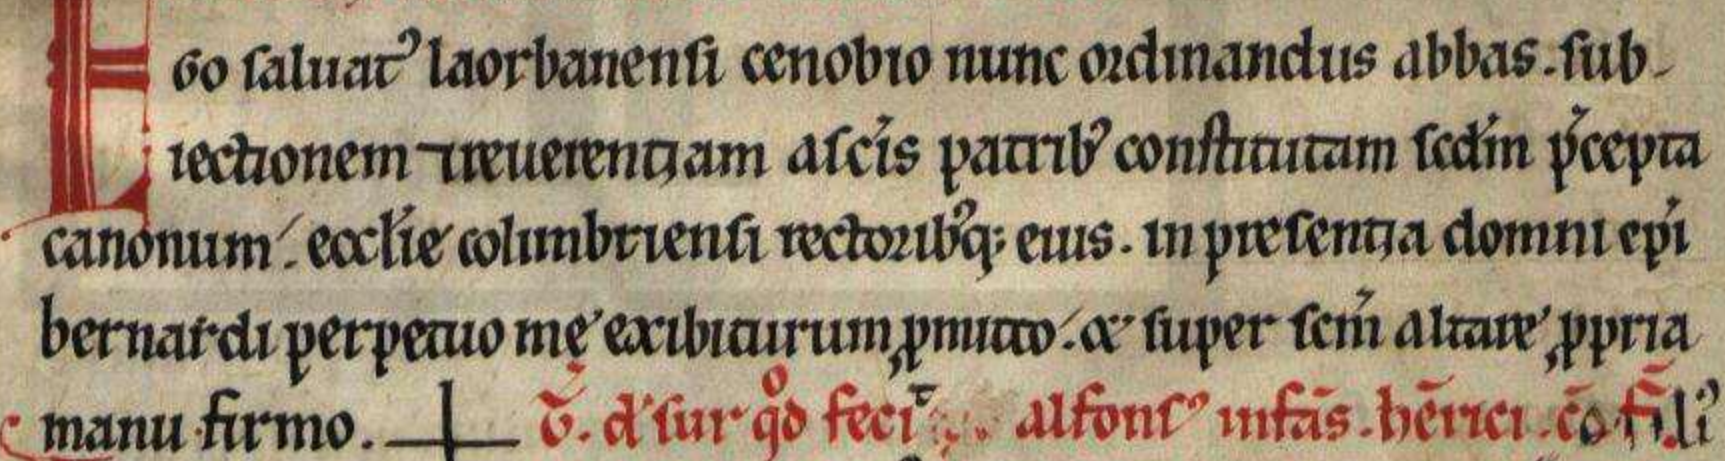 Ego saluatꝰ laorbanensi cenobio nunc ordinandus abbas. sub-
iectionem ⁊ reuerentiam a scis patribꝰ constitutam scdm pͥcepta
canonum. ecclie colimbriensi rectoribꝰq; eius. in presentia domni epi
bernardi perpetuo me exibiturum ꝓmitto. & super scm altare ꝓpria
manu firmo. + d' sur qd feci alfonsꝰ infās. hēnrici. cō filiꝰ